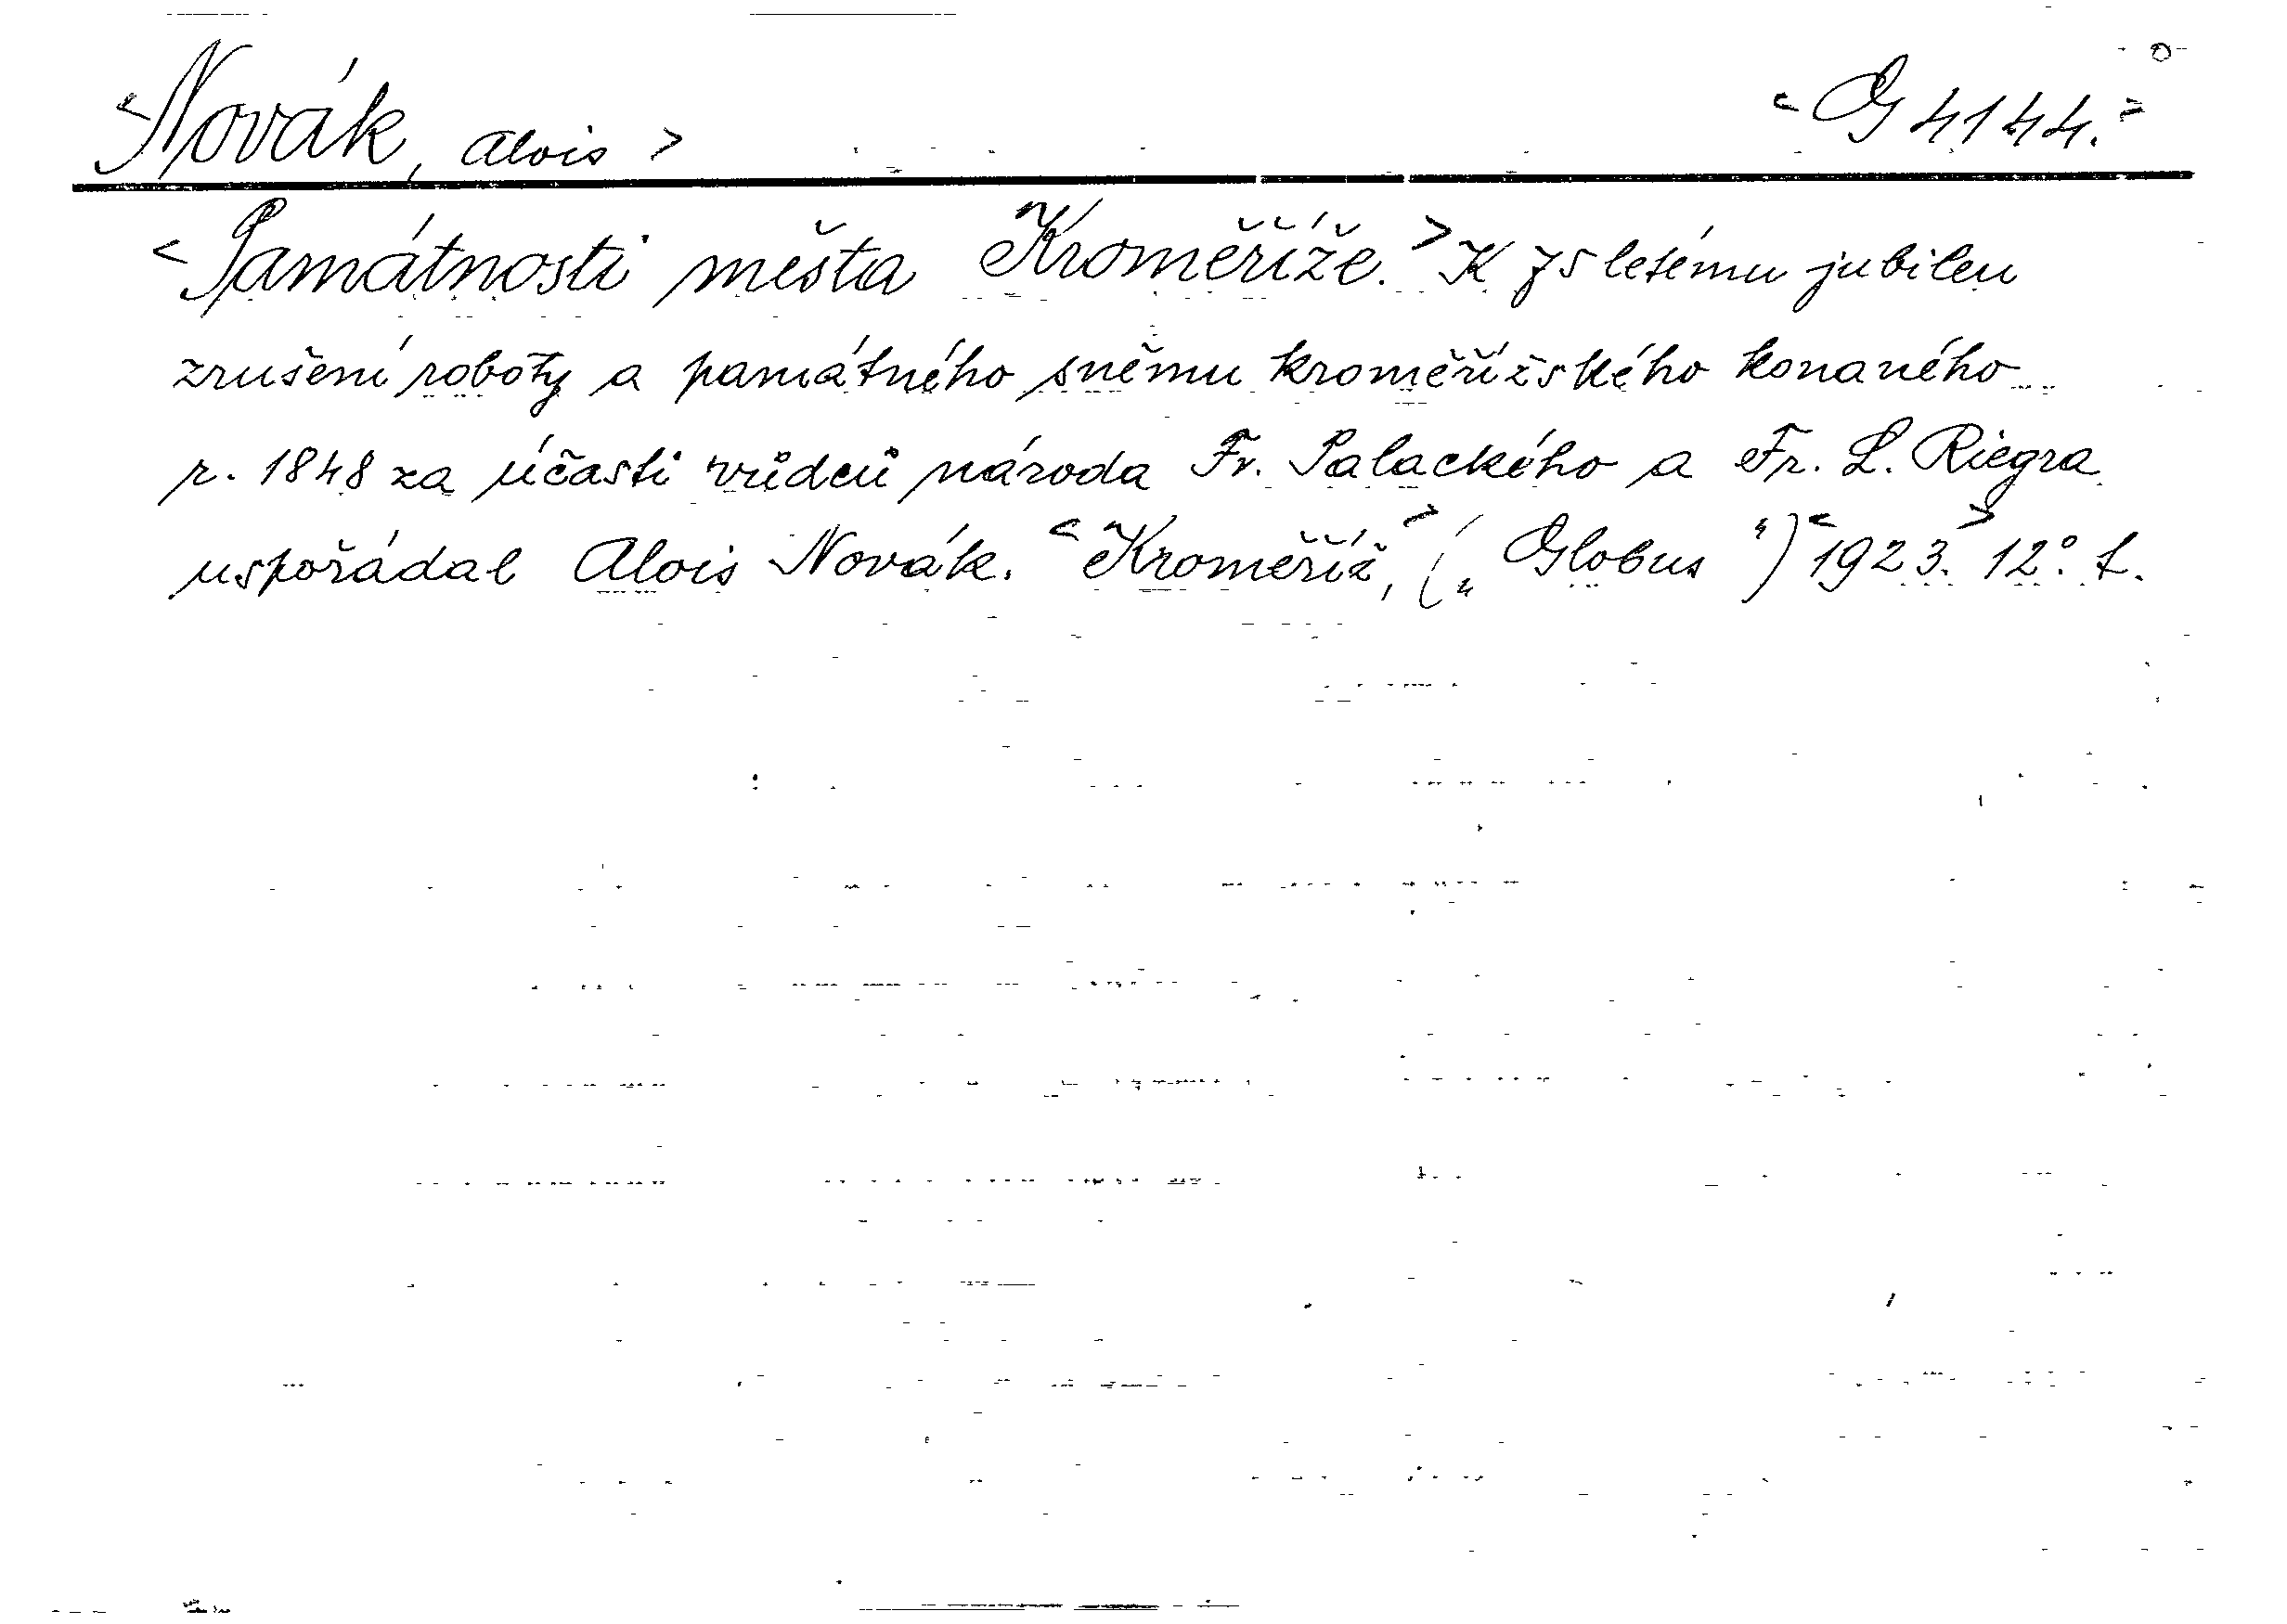 <Novák, Alois> <G 4144.>
<Památnosti města Kroměříže.> K 75 letému jubileu
zrušení roboty a památného sněmu kroměřížského konaného
r. 1848 za účasti vůdců národa Fr. Palackého a Fr. L. Riegra
uspořádal Alois Novák. <Kroměříž,> („Globus“) <1923.> 12°. f.